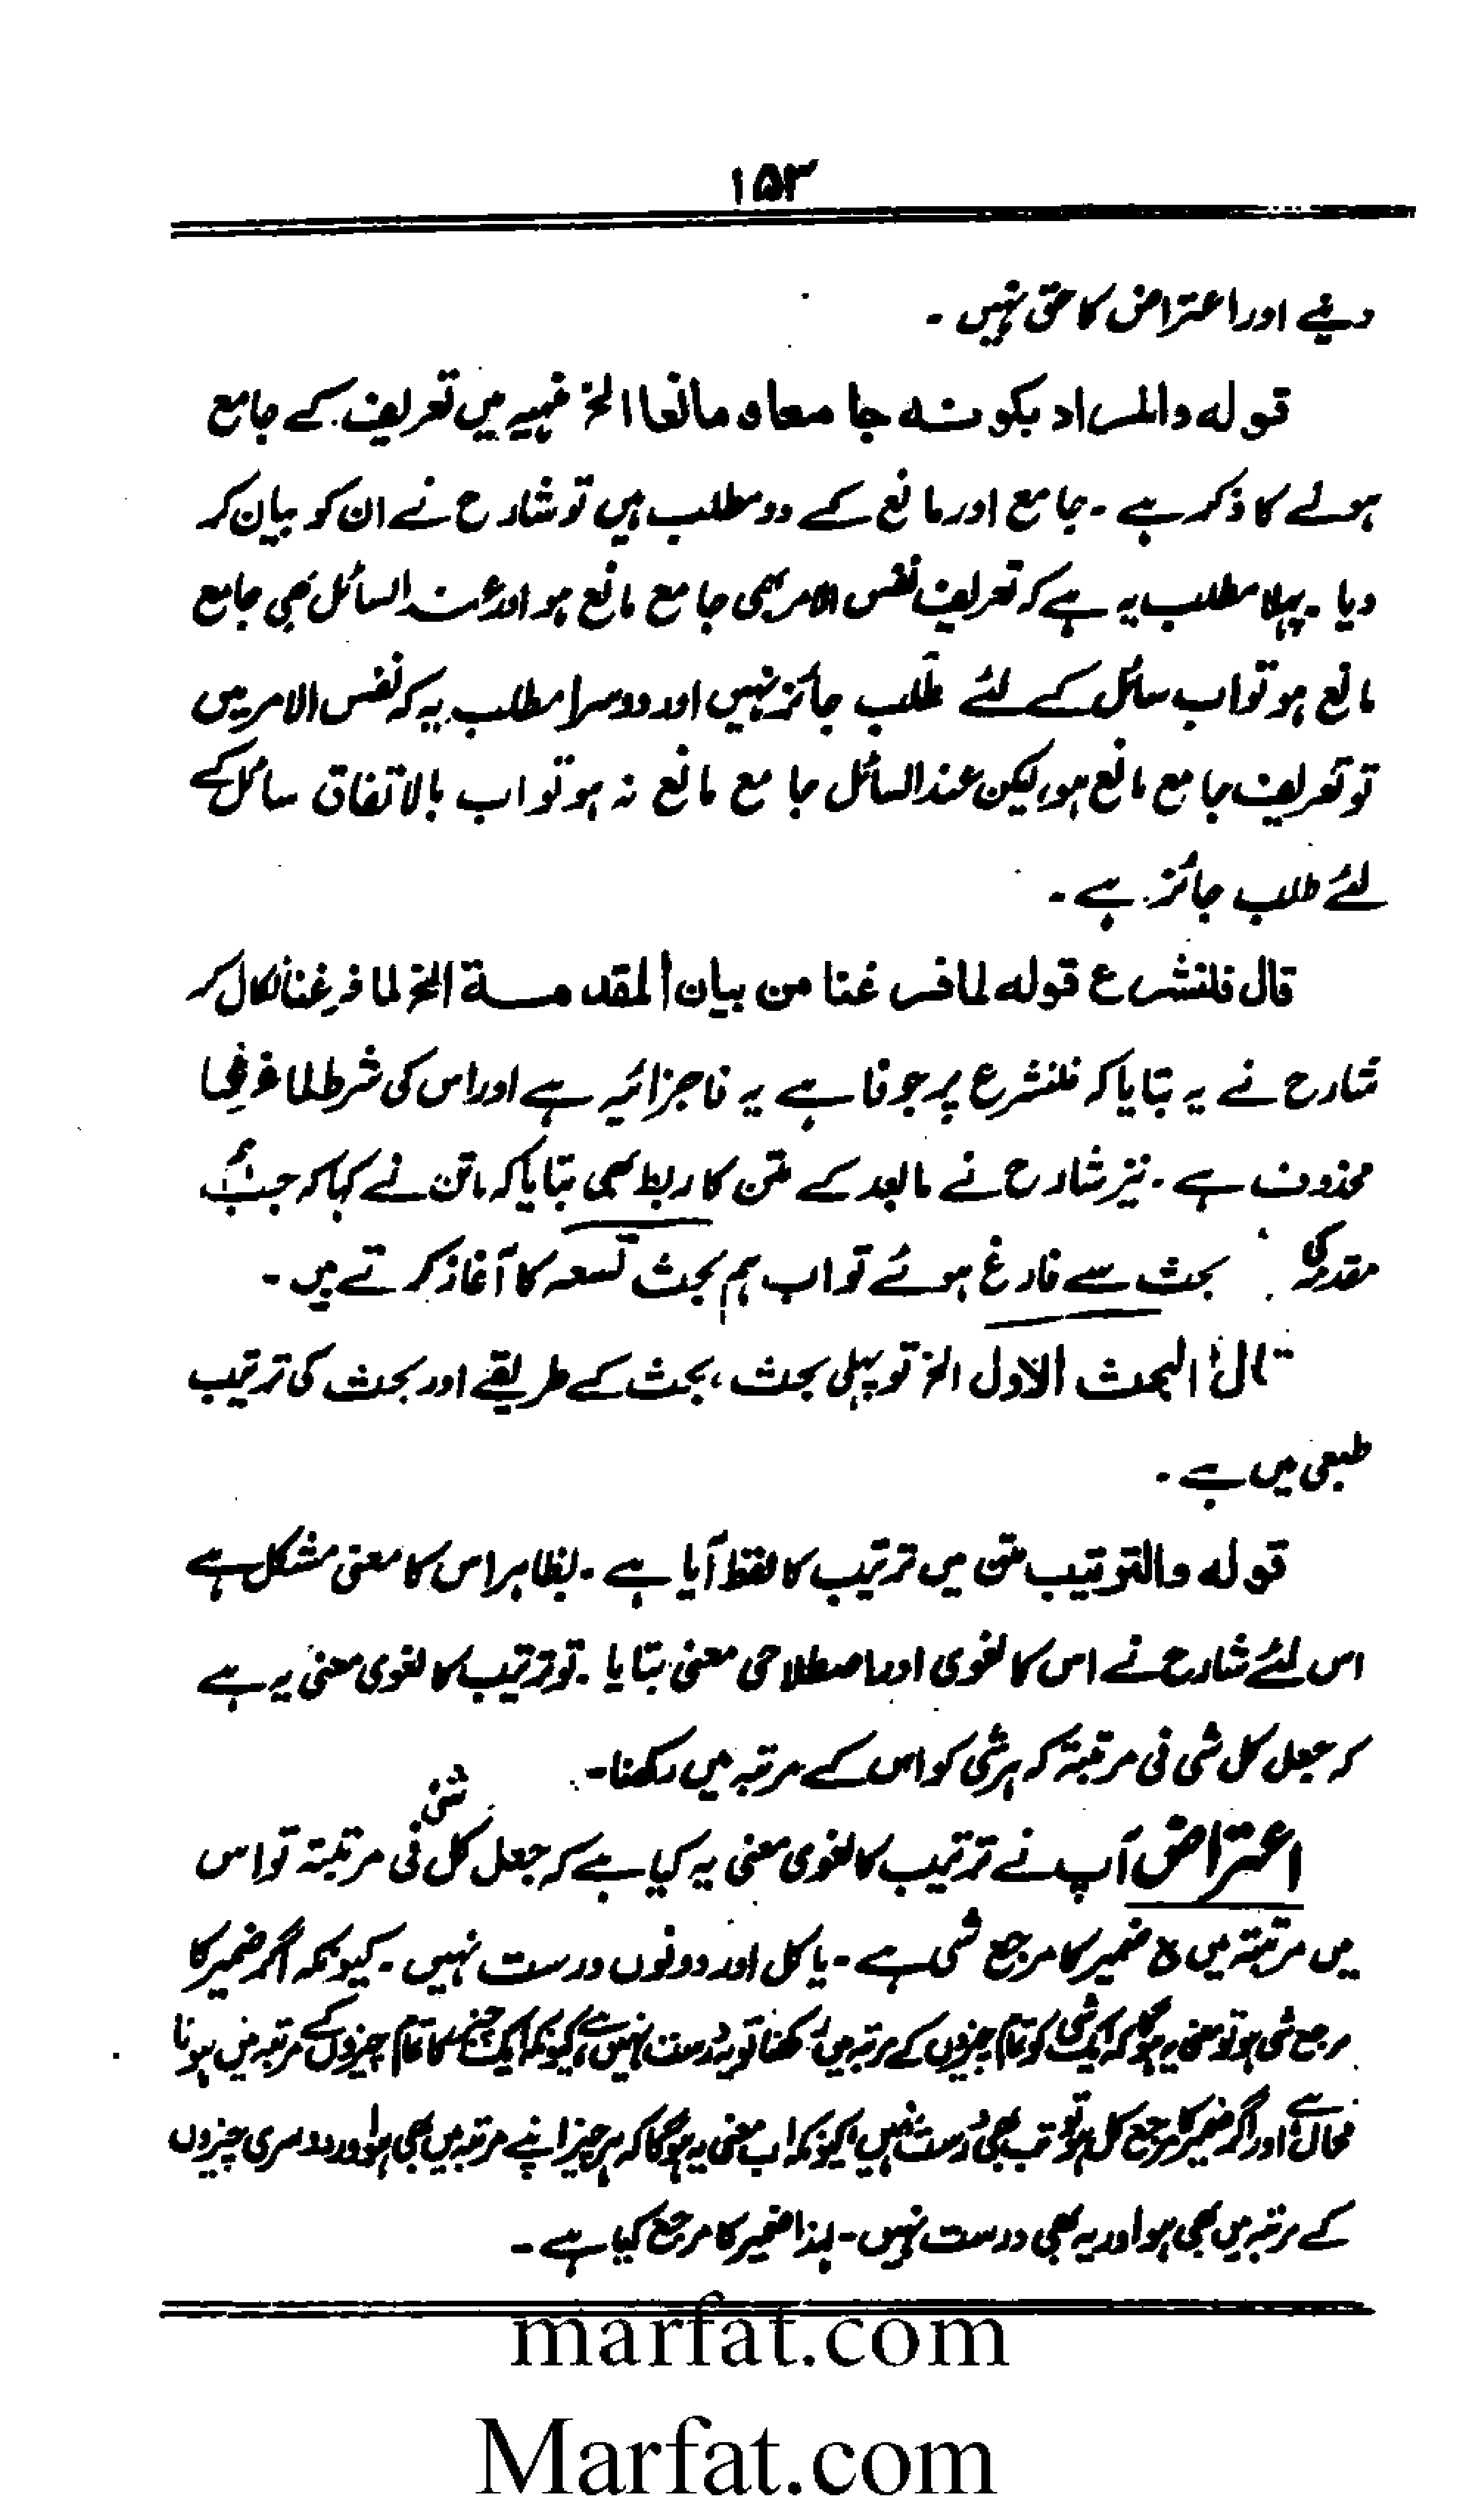 ۱۵۳
دینے اور اعتراض کا حق نہیں ۔
قوله والمراد بكونه جامعا و مانعا الخ منہیہ میں تعریف کے جامع
ہونے کا ذکر ہے ۔ جامع اور مانع کے دو مطلب ہیں تو شارح نے ان کو بیان کر
دیا ۔ پہلا مطلب یہ ہے کہ تعریف نفس الامر بھی جامع مانع ہو اور عند السائل بھی جامع
مانع ہو تو اب سائل کے لئے طلب جائز نہیں اور دوسرا مطلب یہ کہ نفس الامر میں
تو تعریف جامع مانع ہو، لیکن عند السائل جامع مانع نہ ہو تو اب بالاتفاق سائل کے
لئے طلب جائز ہے ۔
قال فلنشرع قوله لما فرغنا من بيان المقدمة الخ لما فرغنا نکال کر
شارح نے یہ بتایا کہ فلنشرع پر جو فا ہے یہ فا جزائیہ ہے اور اس کی شرط لما فرغنا
محذوف ہے ۔ نیز شارح نے مابعد کے متن کا ربط بھی بتایا کہ ماتن نے کہا کہ جب
مقدمہ کی بحث سے فارغ ہوئے تو اب ہم بحث تسعہ کا آغاز کرتے ہیں ۔
قال البحث الاول الخ تو پہلی بحث ، بحث کے طریقے اور بحث کی ترتیب
طبعی میں ہے ۔
قوله والترتيب متن میں ترتیب کا لفظ آیا ہے ۔ بظاہر اس کا معنی مشکل ہے
اس لئے شارح نے اس کا لغوی اور اصطلاحی معنی بتایا ۔ تو ترتیب کا لغوی معنی یہ ہے
کہ جعل کل شی فی مرتبتہ کہ ہر شی کو اس کے مرتبہ میں رکھنا ۔
اعتراض آپ نے ترتیب کا لغوی معنی یہ کیا ہے کہ جعل کل شئ فی مرتبتہ تو اس
میں مرتبتہ میں ہ ضمیر کا مرجع شی ہے ۔ یا کل اور دونوں درست نہیں ۔ کیونکہ اگر ضمیر کا
مرجع شی ہو تو معنی یہ ہوگا کہ ایک شی کو تمام چیزوں کے مرتبہ میں رکھنا تو یہ درست نہیں ہے کیونکہ ایک چیز کا تمام چیزوں کے مرتبہ میں ہونا
محال ہے اور اگر ضمیر کا مرجع کل ہو تو تب بھی درست نہیں کیونکہ اب معنی یہ ہوگا کہ ہر چیز اپنے مرتبہ میں بھی ہو اور دوسری چیزوں
کے مرتبہ میں بھی ہو اور یہ بھی درست نہیں ۔ لہذا ضمیر کا مرجع کیا ہے ۔
marfat.com
Marfat.com